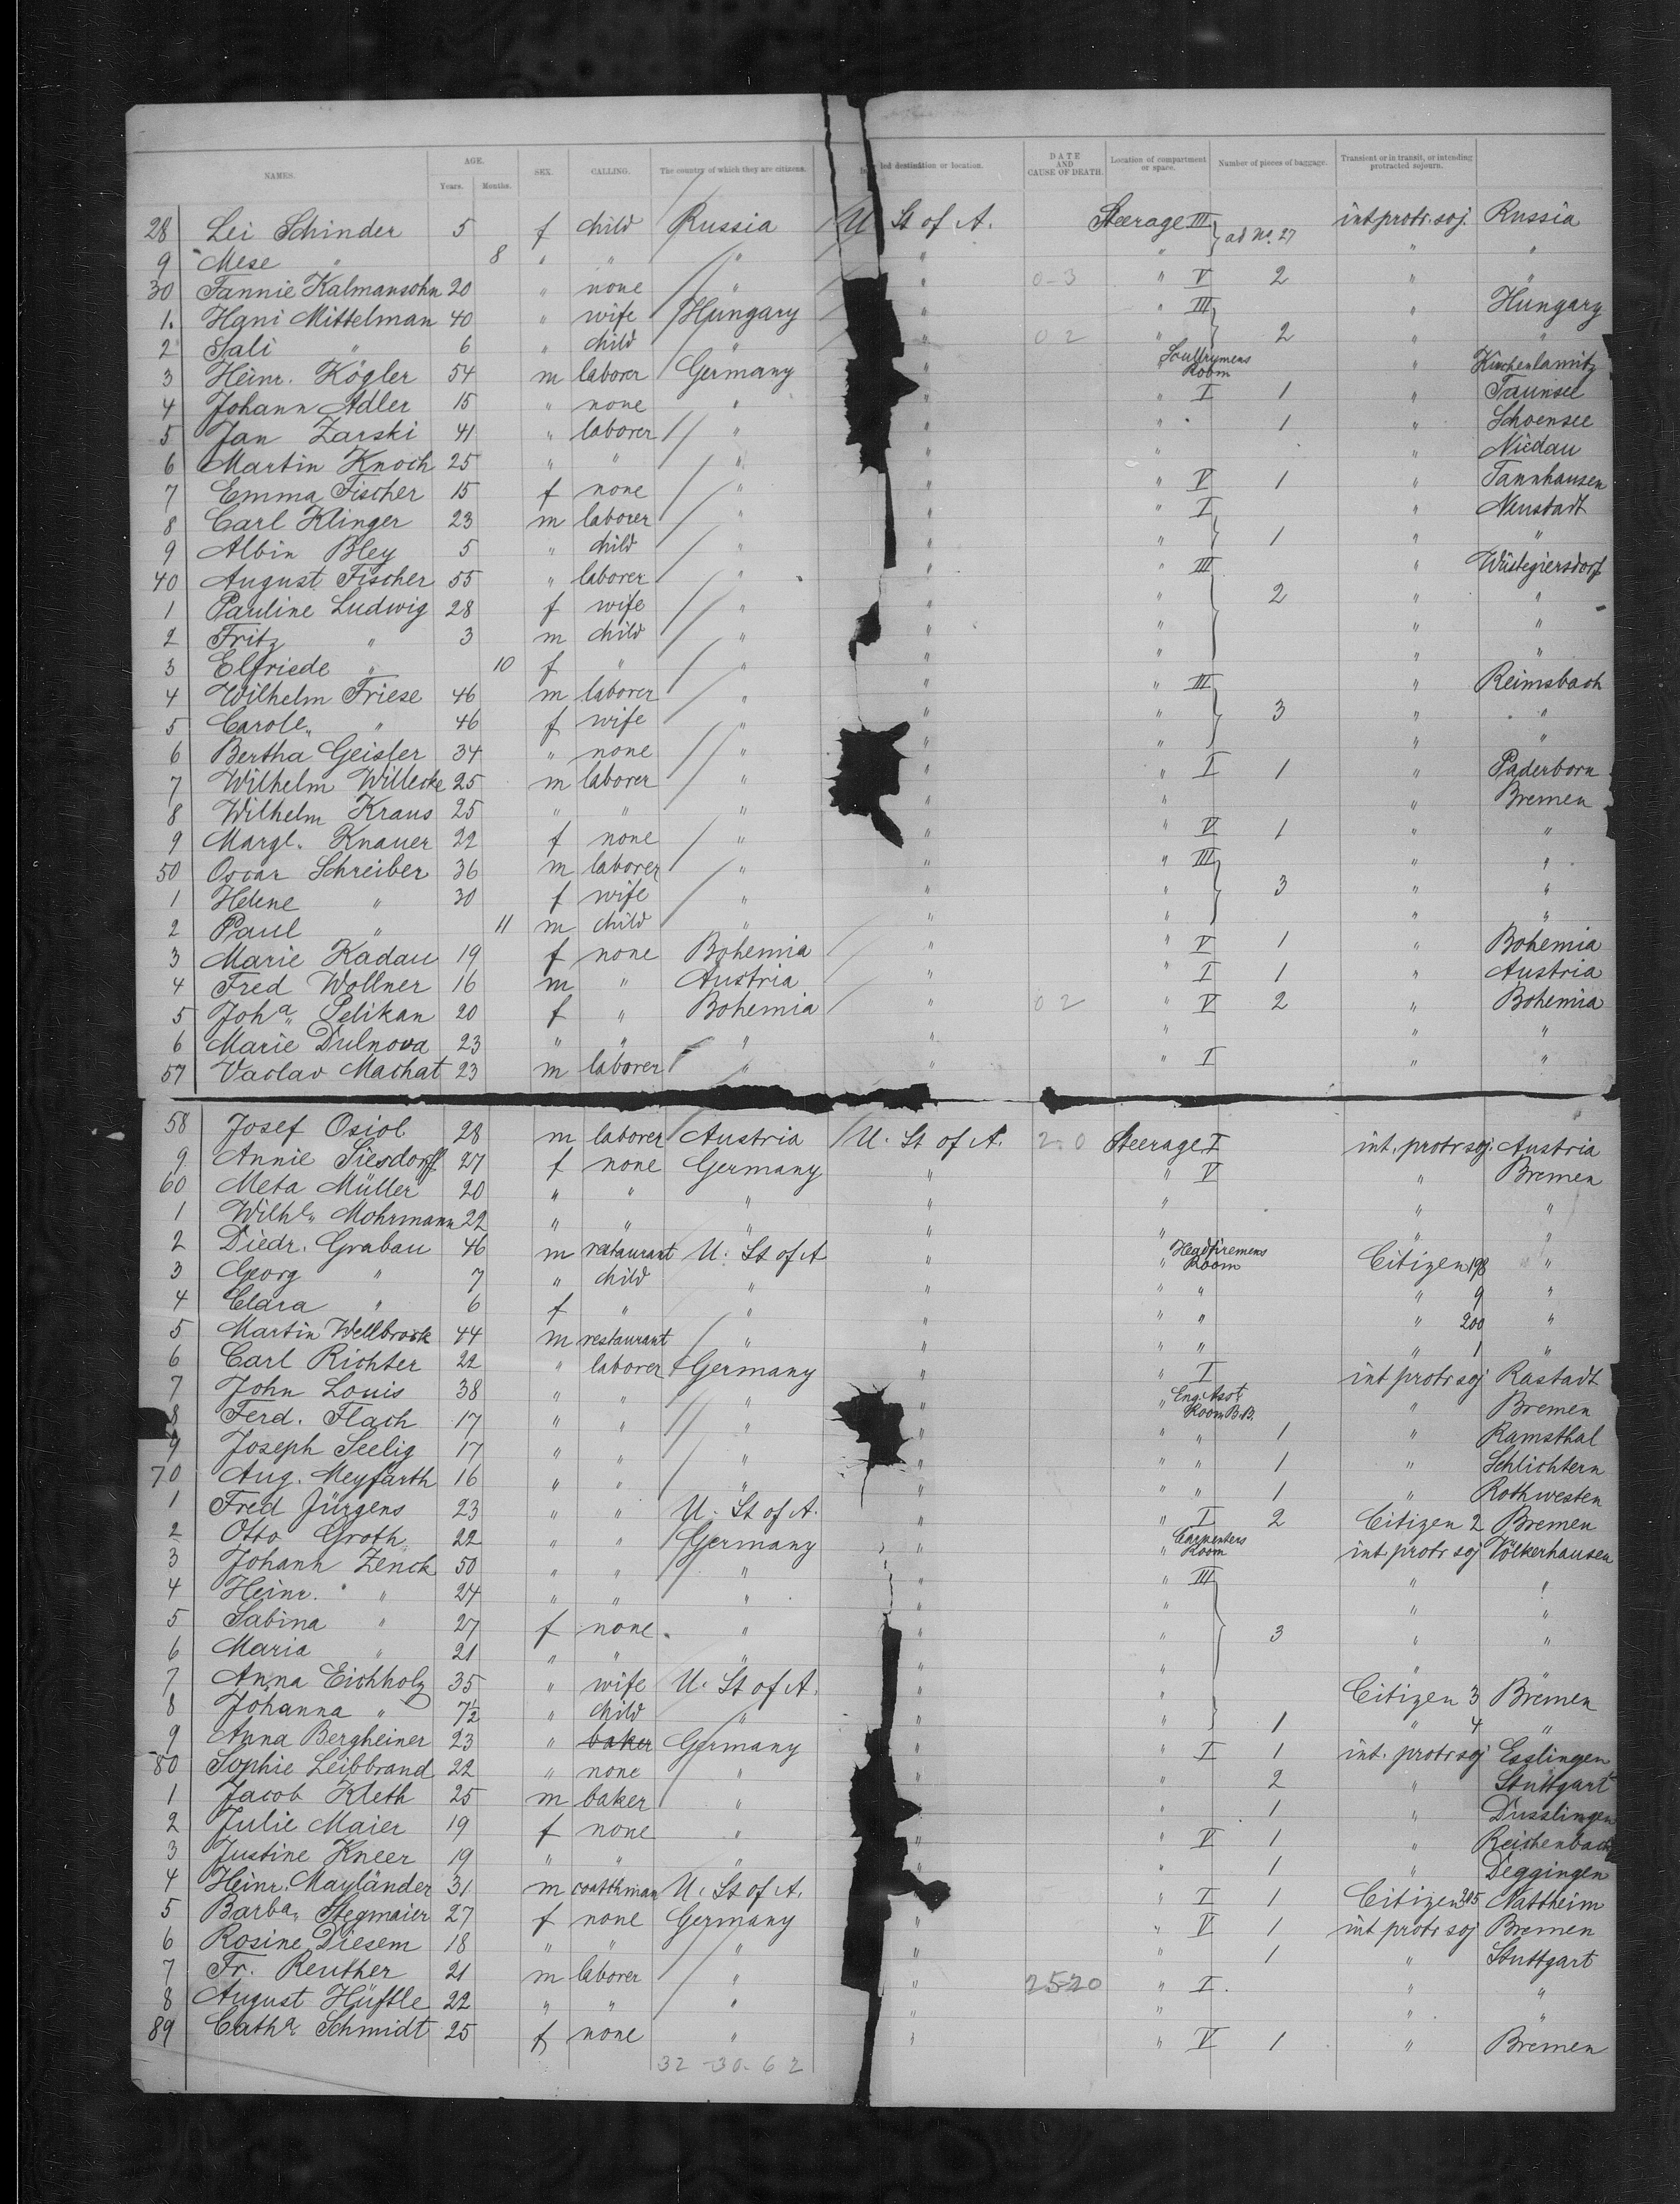 NAMES. AGE. Years. Months. SEX. CALLING. The country of which they are citizens. led destination or location. DATE AND CAUSE OF DEATH. Location of compartment or space. Number of pieces of baggage. Transient or in transit, or intending protracted sojourn.
28 Lei Schinder 5 f child Russia U St of A. Steerage III ad No. 27 int protr. soj. Russia
9 Mese " 8 " " " " " " "
30 Fannie Kalmansohn 20 " none " " 0-3 " V 2 " "
1. Hani Mittelman 40 " wife Hungary " " III " Hungary
2 Sali " 6 " child " " 02 " 2 " "
3 Heinr. Kögler 54 m laborer Germany " Room " Kirchenlamitz
4 Johann Adler 15 " none " " " I 1 " Taunsee
5 Jan Zarski 41 " laborer " " " 1 " Schoensee
6 Martin Knoch 25 " " " " " " Niedau
7 Emma Fischer 15 f none " " " V 1 " Tannhausen
8 Carl Klinger 23 m laborer " " " I " Neustadt
9 Albin Bley 5 " child " " " 1 " "
40 August Fischer 55 " laborer " " " III " Wüstegiersdorf
1 Pauline Ludwig 28 f wife " " " 2 " "
2 Fritz " 3 m child " " " " "
3 Elfriede " 10 f " " " " " "
4 Wilhelm Friese 46 m laborer " " " III " Reimsbach
5 Carole " 46 f wife " " " 3 " "
6 Bertha Geisler 34 " none " " " " "
7 Wilhelm Willecke 25 m laborer " " " I 1 " Paderborn
8 Wilhelm Kraus 25 " " " " " " Bremen
9 Margt. Knauer 22 f none " " " V 1 " "
50 Oscar Schreiber 36 m laborer " " " III " "
1 Helene " 30 f wife " " " 3 " "
2 Paul " 11 m child " " " " "
3 Marie Kadau 19 f none Bohemia " " V 1 " Bohemia
4 Fred Wollner 16 m " Austria " " I 1 " Austria
5 Joha. Pelikan 20 f " Bohemia " 02 " V 2 " Bohemia
6 Marie Dulnova 23 " " " " " " "
57 Vaclav Machat 23 m laborer " " " I " "
58 Josef Osiol 28 m laborer Austria U. St of A. 2.0 Steerage I int. protr soj. Austria
9 Annie Siesdorff 27 f none Germany " " V " Bremen
60 Meta Müller 20 " " " " " " "
1 Wilhl. Mohrmann 22 " " " " " " "
2 Diedr. Grabau 46 m restaurant U. St of A " " Headfiremens Room Citizen 198 "
3 Georg " 7 " child " " " " " 9 "
4 Clara " 6 f " " " " " " 200 "
5 Martin Wellbrock 44 m restaurant " " " " " 1 "
6 Carl Richter 22 " laborer Germany " " I int protr soj Rastadt
7 John Louis 38 " " " " " Eng. Asst Room B.B. " Bremen
8 Ferd. Flach 17 " " " " " " 1 " Ramsthal
9 Joseph Seelig 17 " " " " " " 1 " Schlichtern
70 Aug. Meyfarth 16 " " " " " " 1 " Rothwesten
1 Fred Jürgens 23 " " U. St of A. " " I 2 Citizen 2 Bremen
2 Otto Groth 22 " " Germany " " Carpenters Room int. protr soj Völkerhausen
3 Johann Zenck 50 " " " " " III " "
4 Heinr. " 24 " " " " " " "
5 Sabina " 27 f none " " " 3 " "
6 Maria " 21 " " " " " " "
7 Anna Eichholz 35 " wife U. St of A. " " Citizen 3 Bremen
8 Johanna " 7½ " child " " " 1 " 4 "
9 Anna Bergheiner 23 " baker Germany " " I 1 int. protr soj Esslingen
80 Sophie Leibbrand 22 " none " " " 2 " Stuttgart
1 Jacob Kleth 25 m baker " " " 1 " Dusslingen
2 Julie Maier 19 f none " " " V 1 " Reichenbach
3 Justine Kneer 19 " " " " " 1 " Deggingen
4 Heinr. Mayländer 31 m coatthman U. St of A. " " I 1 Citizen 205 Nattheim
5 Barba. Stegmaier 27 f none Germany " " V 1 int protr soj Bremen
6 Rosine Diesem 18 " " " " " 1 " Stuttgart
7 Fr. Reuther 21 m laborer " " 2520 " I. " "
8 August Hüftle 22 " " " " " " "
89 Catha. Schmidt 25 f none " " " V 1 " Bremen
32-30-62